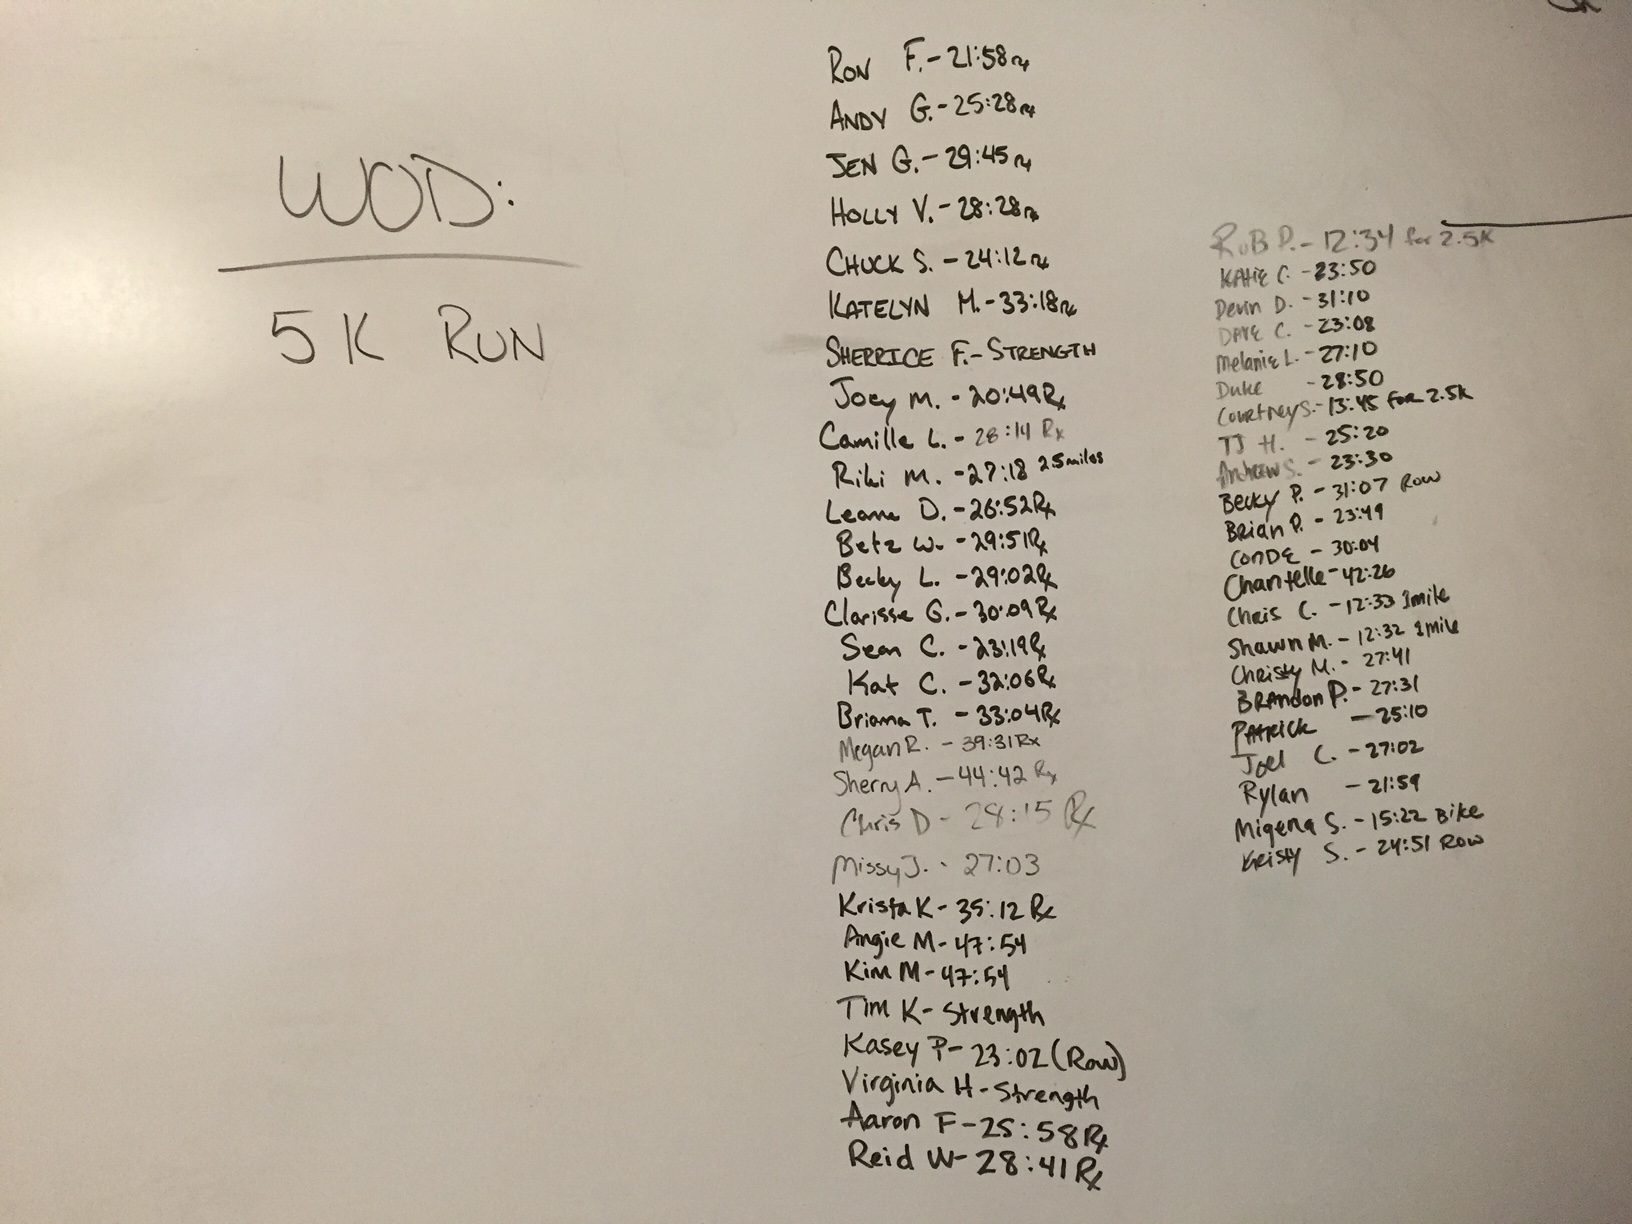 WOD:
5K RUN
RON F. - 21:58 rx
ANDY G. - 25:28 rx
JEN G. - 29:45 rx
HOLLY V. - 28:28 rx
CHUCK S. - 24:12 rx
KATELYN M. - 33:18 rx
SHERRICE F. - STRENGTH
Joey M. - 20:49 Rx
Camille L. - 28:14 Rx
Riki M. - 27:18 2.5 miles
Leanne D. - 26:52 Rx
Betz W. - 29:51 Rx
Becky L. - 29:02 Rx
Clarisse G. - 30:09 Rx
Sean C. - 23:19 Rx
Kat C. - 32:06 Rx
Briana T. - 33:04 Rx
Megan R. - 39:31 Rx
Sherry A. - 44:42 Rx
Chris D - 28:15 Rx
Missy J. - 27:03
Krista K - 35:12 Rx
Angie M - 47:54
Kim M - 47:54
Tim K - Strength
Kasey P - 23:02 (Row)
Virginia H - Strength
Aaron F - 25:58 Rx
Reid W - 28:41 Rx
RoB P. - 12:34 for 2.5K
KATIE C. - 23:50
Devin D. - 31:10
DAVE C. - 23:08
Melanie L. - 27:10
Duke - 28:50
Courtney S. - 13:45 FOR 2.5K
TJ H. - 25:20
Andrew S. - 23:30
Becky P. - 31:07 Row
Brian P. - 23:49
CONDE - 30:04
Chantelle - 42:26
Chris C. - 12:33 1mile
Shawn M. - 12:32 1mile
Christy M. - 27:41
BRANDON P. - 27:31
PATRICK - 25:10
Joel C. - 27:02
Rylan - 21:59
Migena S. - 15:22 Bike
Kristy S. - 24:51 Row